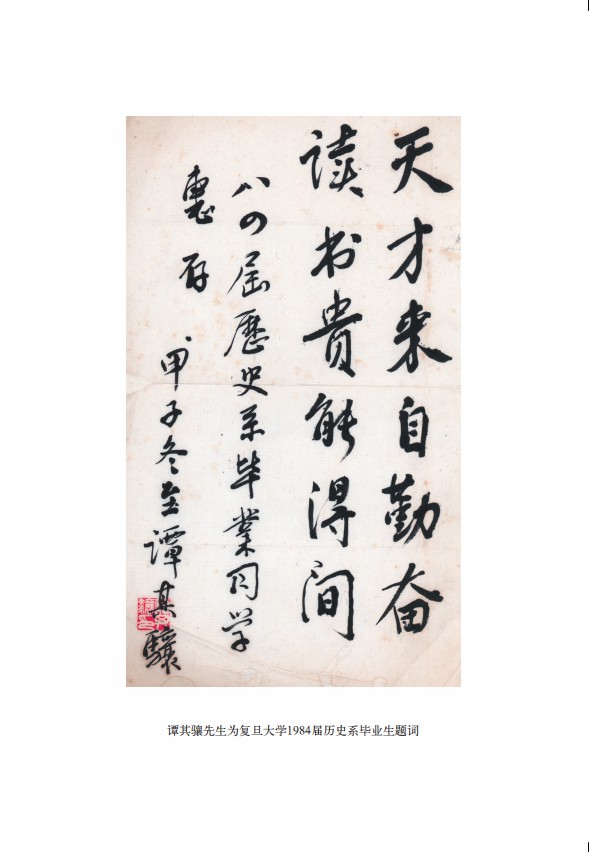 天才来自勤奋
读书贵能得间
八四届歷史系毕業同学
惠存
甲子冬至谭其驤
谭其骧先生为复旦大学1984届历史系毕业生题词